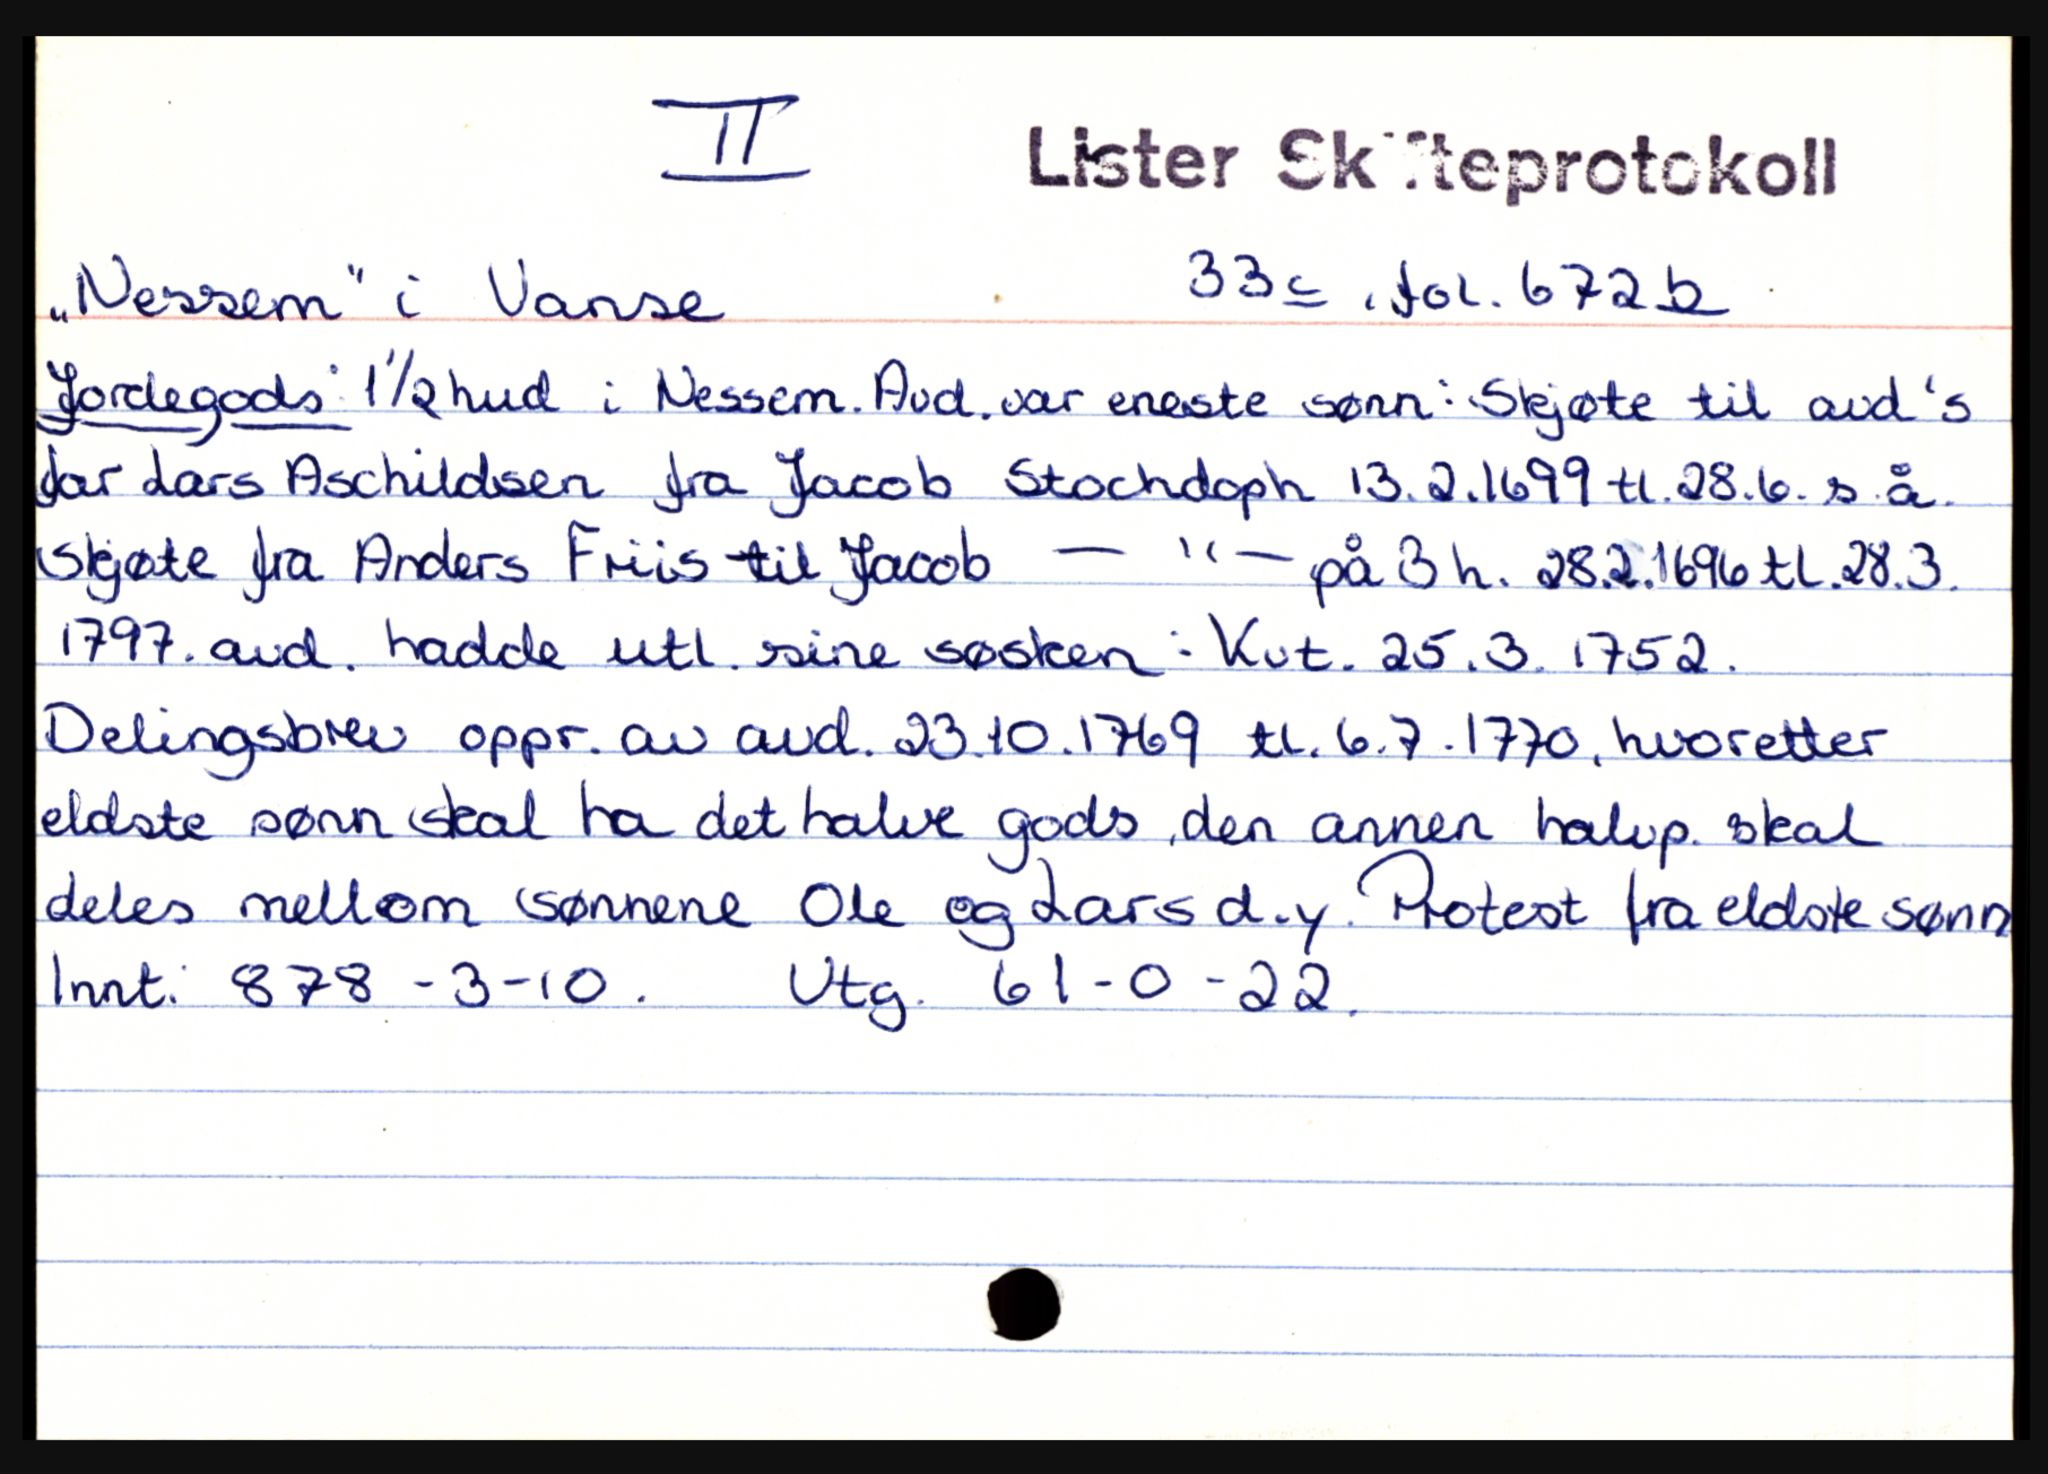 II
Lister Skifteprotokoll
„Nessem" i Vanse 33c, fol. 672b
Jordegods: 1 1/2 hud i Nessem. Avd. var eneste sønn: Skjøte til avd's
far Lars Aschildsen fra Jacob Stochdoph 13.2.1699 tl. 28.6. s.å.
Skjøte fra Anders Friis til Jacob — " — på 3 h. 28.2.1696 tl. 28.3.
1797. avd. hadde utl. sine søsken: Kvt. 25.3.1752.
Delingsbrev oppr. av avd. 23.10.1769 tl. 6.7.1770, hvoretter
eldste sønn skal ha det halve gods, den annen halvp. skal
deles mellom sønnene Ole og Lars d.y. Protest fra eldste sønn
Innt: 878-3-10. Utg. 61-0-22.